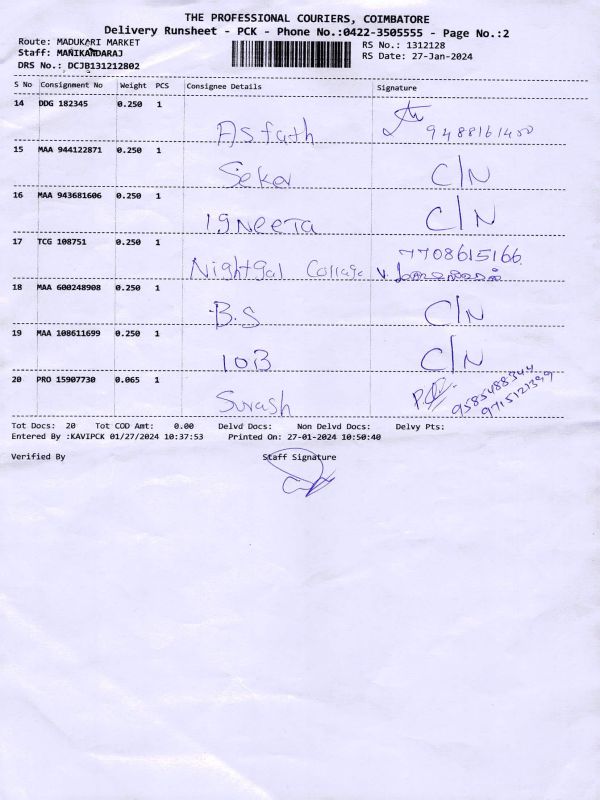 THE PROFESSIONAL COURIERS, COIMBATORE
Delivery Runsheet - PCK - Phone No.:0422-3505555 - Page No.:2
Route: MADUKARI MARKET
RS No.: 1312128
Staff: MANIKANDARAJ
RS Date: 27-Jan-2024
DRS No.: DCJB131212802
S No Consignment No Weight PCS Consignee Details Signature
14 DDG 182345 0.250 1
Asfath 9488161400
15 MAA 944122871 0.250 1
Seker C/N
16 MAA 943681606 0.250 1
IGNEETA C/N
17 TCG 108751 0.250 1
7708615166
Nightgal Collage V.
18 MAA 600248908 0.250 1
B.S C/N
19 MAA 108611699 0.250 1
IOB C/N
20 PRO 15907730 0.065 1
9585488344
Surash 9715121399
Tot Docs: 20 Tot COD Amt: 0.00 Delvd Docs: Non Delvd Docs: Delvy Pts:
Entered By :KAVIPCK 01/27/2024 10:37:53 Printed On: 27-01-2024 10:50:40
Verified By Staff Signature